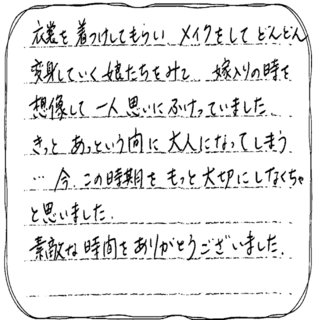 衣裳を着つけしてもらい メイクをして どんどん
変身していく娘たちをみて 嫁入りの時を
想像して 一人思いにふけっていました
きっと あっという間に 大人になってしまう
… 今、この時期を もっと大切にしなくちゃ
と思いました.
素敵な時間をありがとうございました.